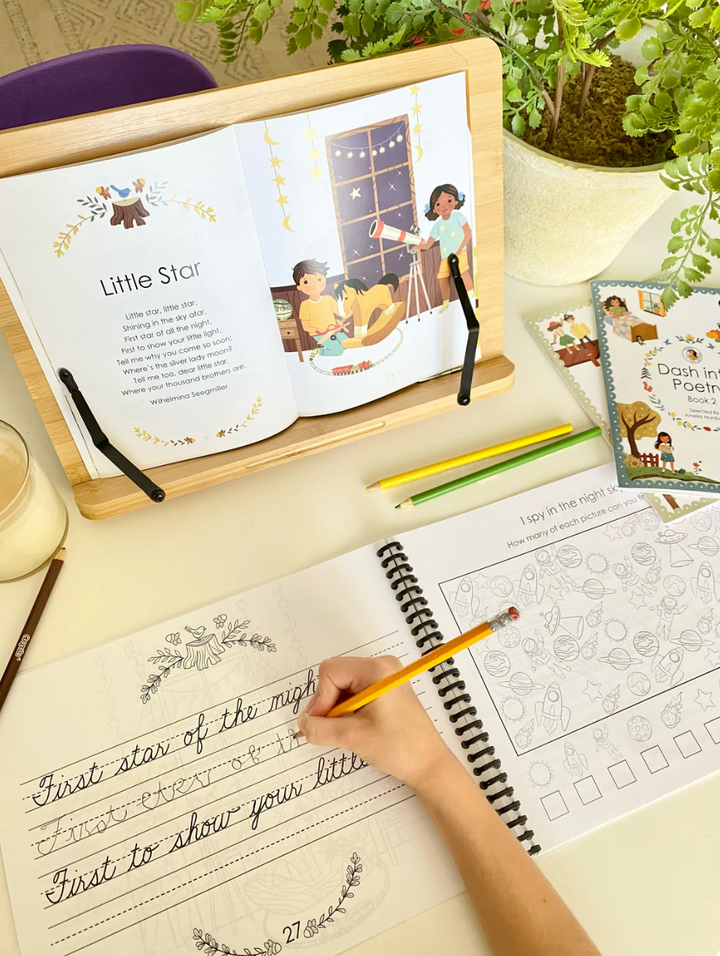 Little Star
Little star, little star,
Shining in the sky afar,
First star of all the night,
First to show your little light,
Tell me why you come so soon;
Where's the silver lady moon?
Tell me too, dear little star,
Where your thousand brothers are.
Wilhelmina Seegmiller
9
10
Dash int
Poetr
Book 2
Selected
Amelia
I spy in the night sky
How many of each picture can you
First star of the nigh
First
First to show your little
27
crayola